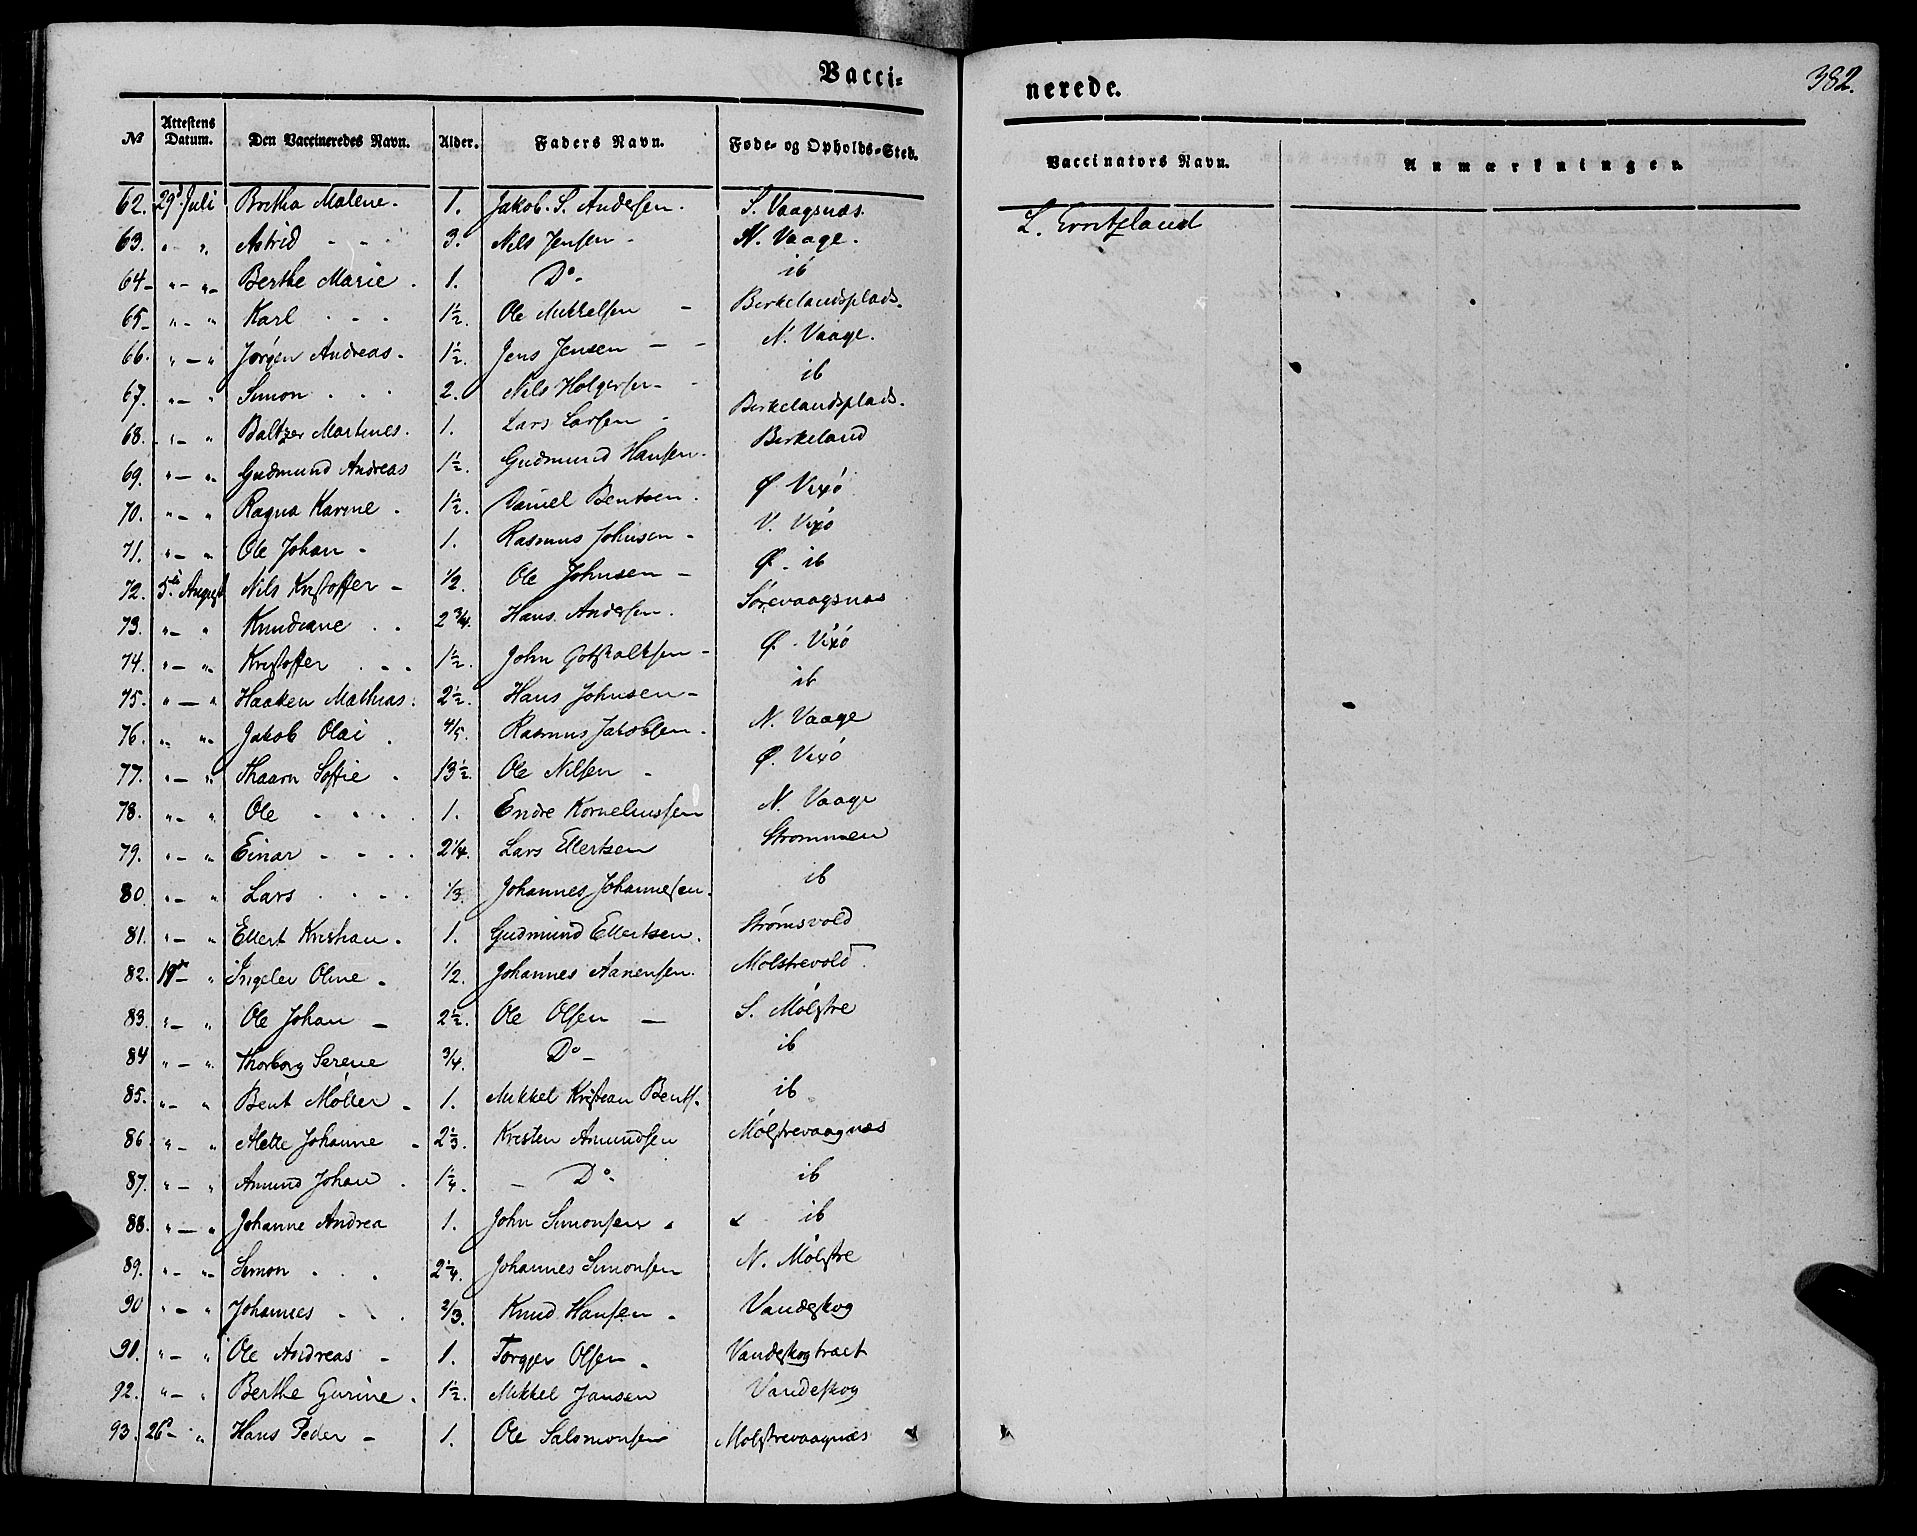 Vacci-
nerede.
382.
№ Attestens Datum. Den Vaccineredes Navn. Alder. Faders Navn. Føde- og Opholds-Sted. Vaccinators Navn. Anmærkninger.
62. 29d Juli Bertha Malene. 1. Jakob. S. Andersen. S. Vaagsnæs. L. Erritzland
63. " " Astrid - - - 3. Nils Jensen - N. Vaage.
64- "-" Berthe Marie. 1. Do- ib
65- "-" Karl . . . 1½. Ole Mikkelsen - Birkelandsplads.
66. "-" Jørgen Andreas. 1½. Jens Jensen - - N. Vaage.
67. "-" Simon . . . 2. Nils Holgersen - - ib
68. "-" Baltzer Martines. 1. Lars Larsen - Birkelandsplads.
69. "-" Gudmund Andreas 1½. Gudmund Hansen. Birkeland
70. "-" Ragna Karine . 1½. Daniel Bentsen. Ø Vixø
71. "-" Ole Johan - 1. Rasmus Johnsen - V. Vixø
72. 5te August Nils Kristoffer - 1/2. Ole Johnsen - Ø. ib
73. "-" Knudiane . . 2 3/4. Hans Andersen. Sørevaagsnæs
74. "-" Kristoffer . . . 1½. John Gotskalksen - Ø. Vixø
75. "-" Haaken Mathias. 2½. Hans Johnsen - ib
76. " " Jakob Olai . 4/5. Rasmus Jakobsen. N. Vaage
77. "-" Thaarn Sofie . 13½. Ole Nilsen - Ø. Vixø
78. "-" Ole . . . . 1. Endre Korneliussen N. Vaage
79. "-" Einar - - . . 2 1/4. Lars Ellertsen Strømmen
80. "-" Lars . . . . 1/3. Johannes Johannesen. ib
81. "-" Ellert Kristian. 1. Gudmund Ellertsen. Strømsvold
82. 19de- " Ingeler Oline - 1/2. Johannes Aanensen. Mølstrevold.
83. "-" Ole Johan - 2½. Ole Olsen - S. Mølstre
84 "-" Thorborg Serene 3/4. Do- ib
85. "-" Bent Møller - 1. Mikkel Kristian Bents. ib
86. "-" Mette Johanne - 2 1/3. Kristen Amundsen Mølstrevaagnæs
87. "-" Amund Johan . 1 1/4. - Do- ib
88. "-" Johanne Andrea 1. John Simonsen . ib
89. "-" Simon . . . 2 1/4. Johannes Simonsen N. Mølstre
90 "-" Johannes . . . 2/3. Knud Hansen - Vandeskog
91. "-" Ole Andreas - 1. Torgjer Olsen - Vandeskogtraet
92. "-" Berthe Gurine . 1½. Mikkel Jansen Vandeskog
93. 26d- " Hans Peder - 1. Ole Salomonsen Mølstrevaagnæs